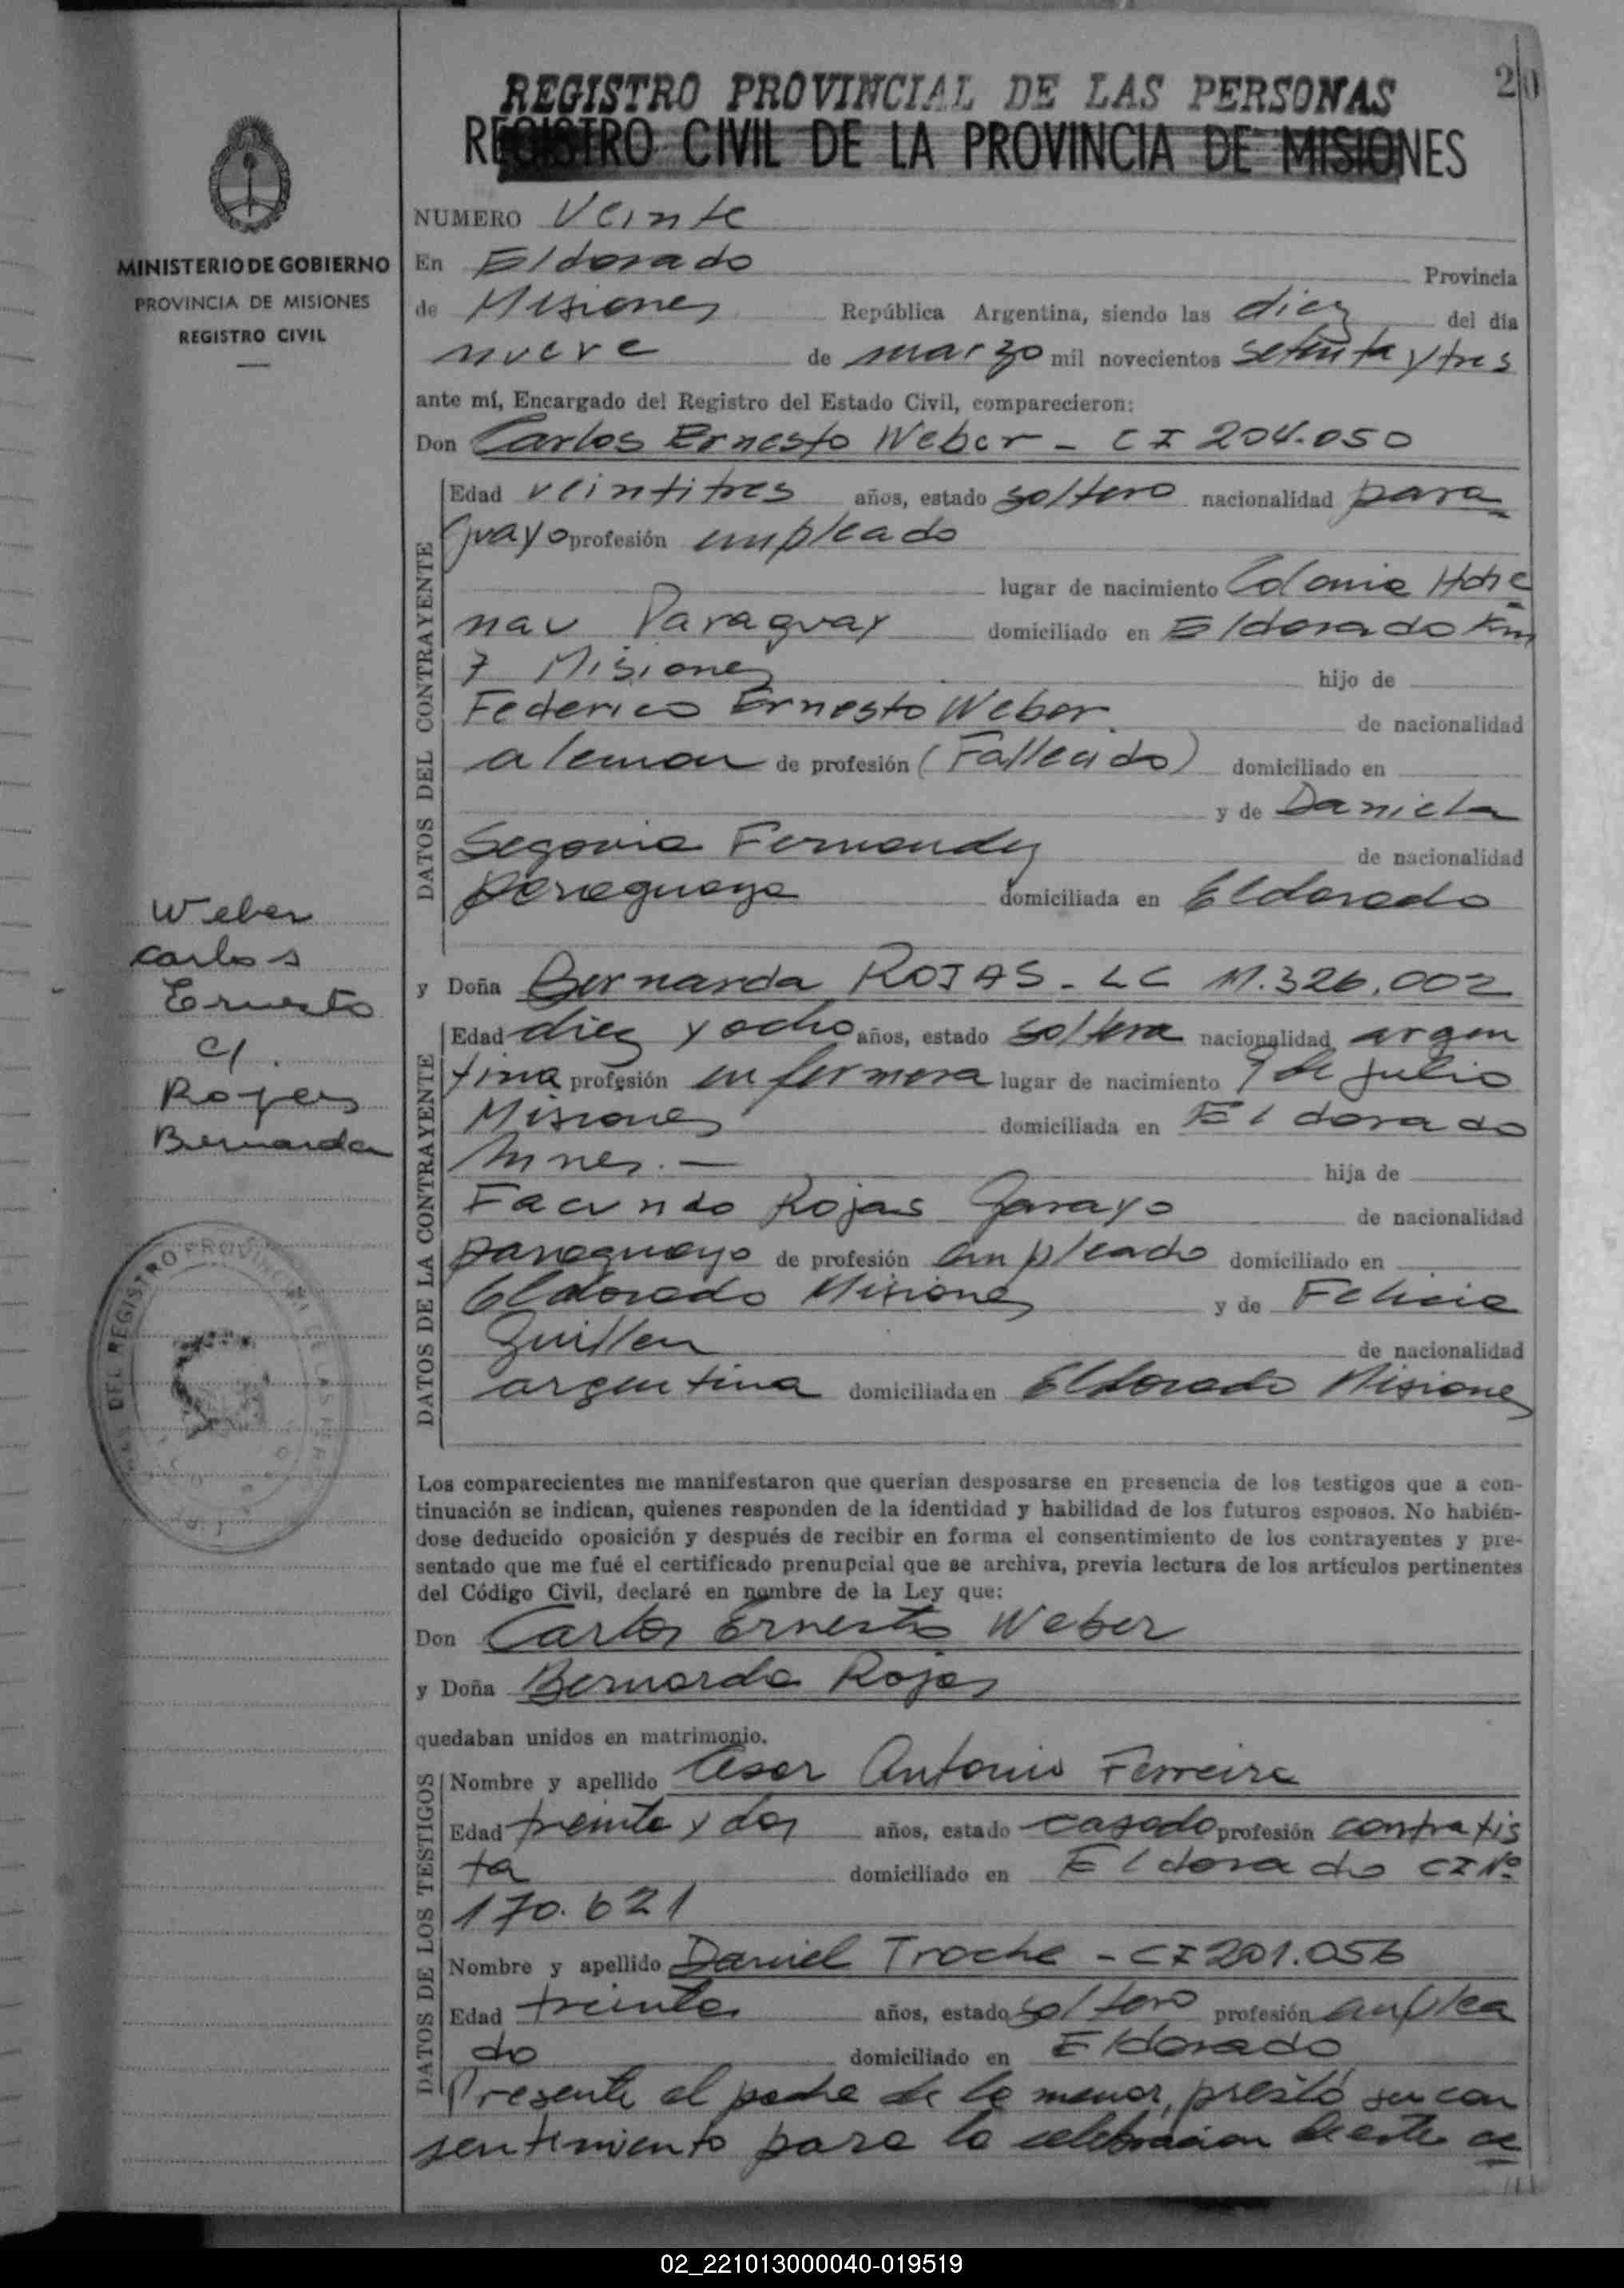 20
REGISTRO PROVINCIAL DE LAS PERSONAS
REGISTRO CIVIL DE LA PROVINCIA DE MISIONES
MINISTERIO DE GOBIERNO
PROVINCIA DE MISIONES
REGISTRO CIVIL
NUMERO Veinte
En Eldorado Provincia
de Misiones República Argentina, siendo las diez del día
nueve de marzo mil novecientos setenta y tres
ante mí, Encargado del Registro del Estado Civil, comparecieron:
Don Carlos Ernesto Weber - CI 204.050
DATOS DEL CONTRAYENTE
Edad veintitres años, estado soltero nacionalidad para
guayo profesión empleado
lugar de nacimiento Colonia Hohe
nau Paraguay domiciliado en Eldorado Km
7 Misiones hijo de
Federico Ernesto Weber de nacionalidad
aleman de profesión (Fallecido) domiciliado en
y de Daniela
Segovia Fernandez de nacionalidad
paraguaya domiciliada en Eldorado
Weber
Carlos
Ernesto
c/.
Rojas
Bernarda
y Doña Bernarda ROJAS - LC 11.326.002
DATOS DE LA CONTRAYENTE
Edad diez y ocho años, estado soltera nacionalidad argen
tina profesión enfermera lugar de nacimiento 9 de Julio
Misiones domiciliada en Eldorado
Mnes. — hija de
Facundo Rojas Garayo de nacionalidad
paraguayo de profesión empleado domiciliado en
Eldorado Misiones y de Felicia
Guillen de nacionalidad
argentina domiciliada en Eldorado Misiones
DEL REGISTRO PROVINCIAL DE LAS PER
Los comparecientes me manifestaron que querían desposarse en presencia de los testigos que a con-
tinuación se indican, quienes responden de la identidad y habilidad de los futuros esposos. No habién-
dose deducido oposición y después de recibir en forma el consentimiento de los contrayentes y pre-
sentado que me fué el certificado prenupcial que se archiva, previa lectura de los artículos pertinentes
del Código Civil, declaré en nombre de la Ley que:
Don Carlos Ernesto Weber
y Doña Bernarda Rojas
quedaban unidos en matrimonio.
DATOS DE LOS TESTIGOS
Nombre y apellido Cesar Antonio Ferreira
Edad treinta y dos años, estado casado profesión contratis
ta domiciliado en Eldorado CI Nº
170.621
Nombre y apellido Daniel Troche - CI 201.056
Edad treinta años, estado soltero profesión emplea
do domiciliado en Eldorado
Presente el padre de la menor, prestó su con
sentimiento para la celebracion de este ac
02_221013000040-019519